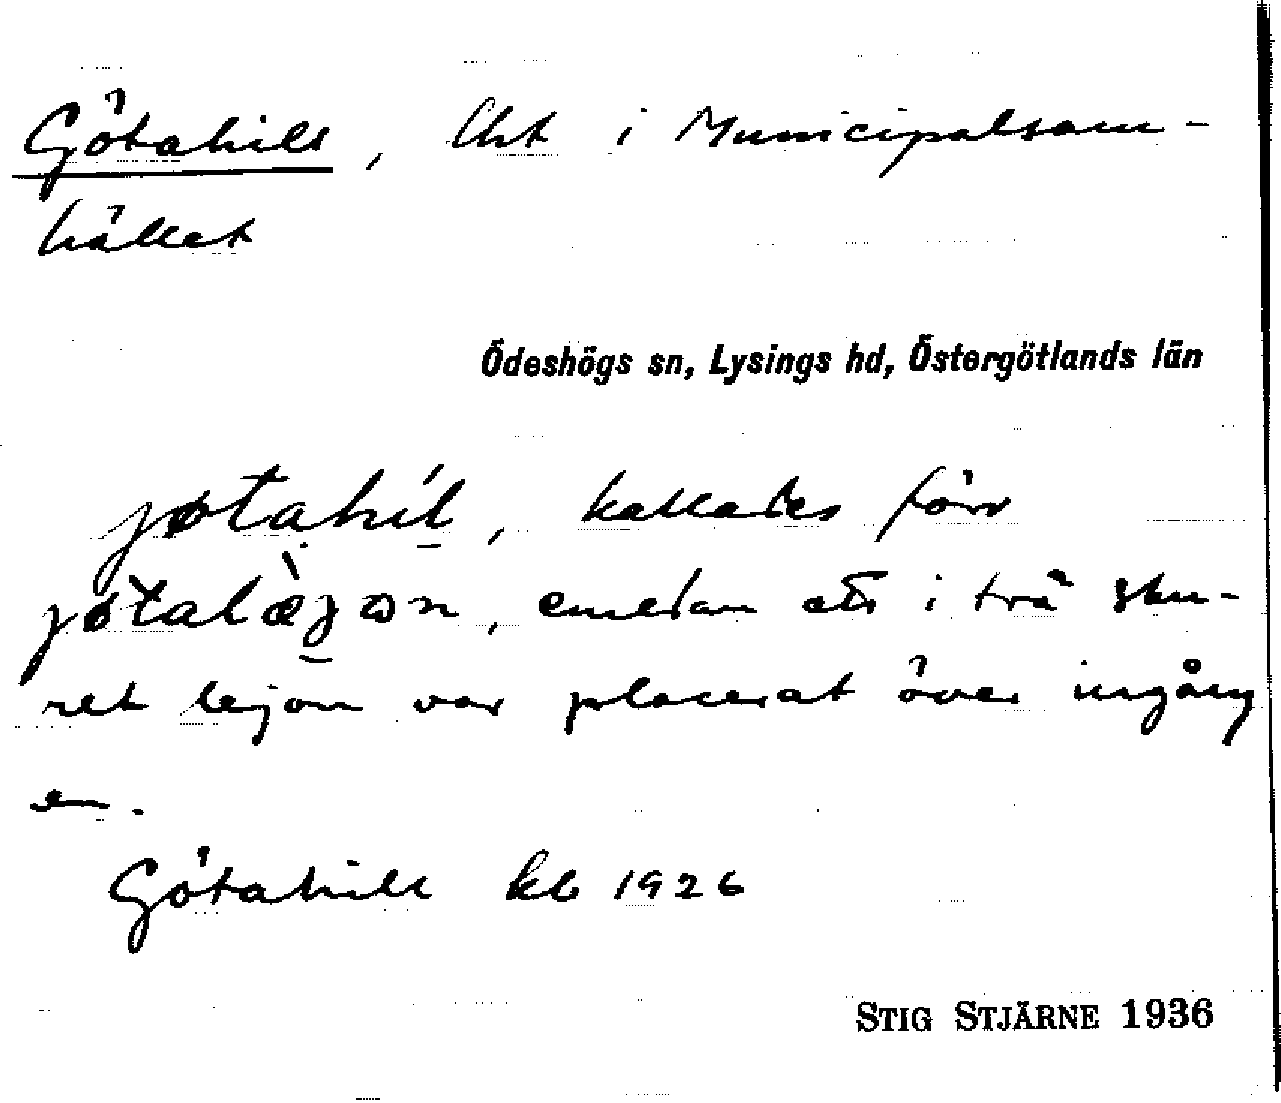 Götahill, Lht i Municipalsam-
hället
Ödeshögs sn, Lysings hd, Östergötlands län
jøtahíl, kallades förr
jøtalæ̀jɷn, emedan ett i trä sku-
ret lejon var placerat över ingång
en.
Götahill kb 1926
STIG STJÄRNE 1936